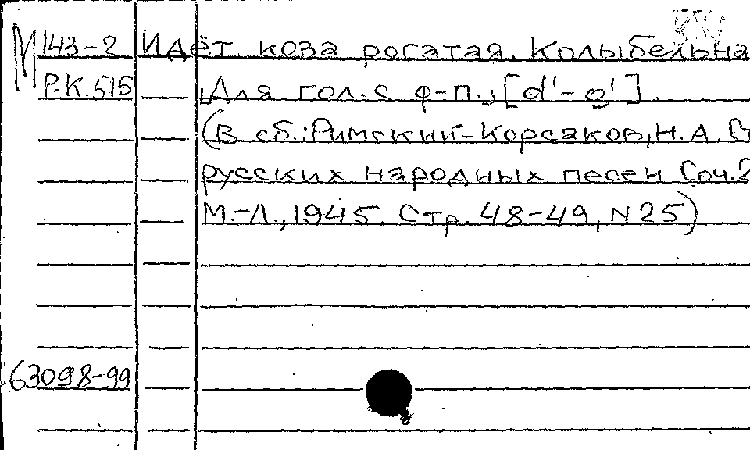 М 143-2 Идёт коза рогатая. Колыбельна
Р.К. 515 Для гол. с ф-п., [d'-g'].
(В сб.: Римский-Корсаков, Н.А. С
русских народных песен Соч. 2
М.-Л., 1945. Стр. 48-49, N 25)
63098-99